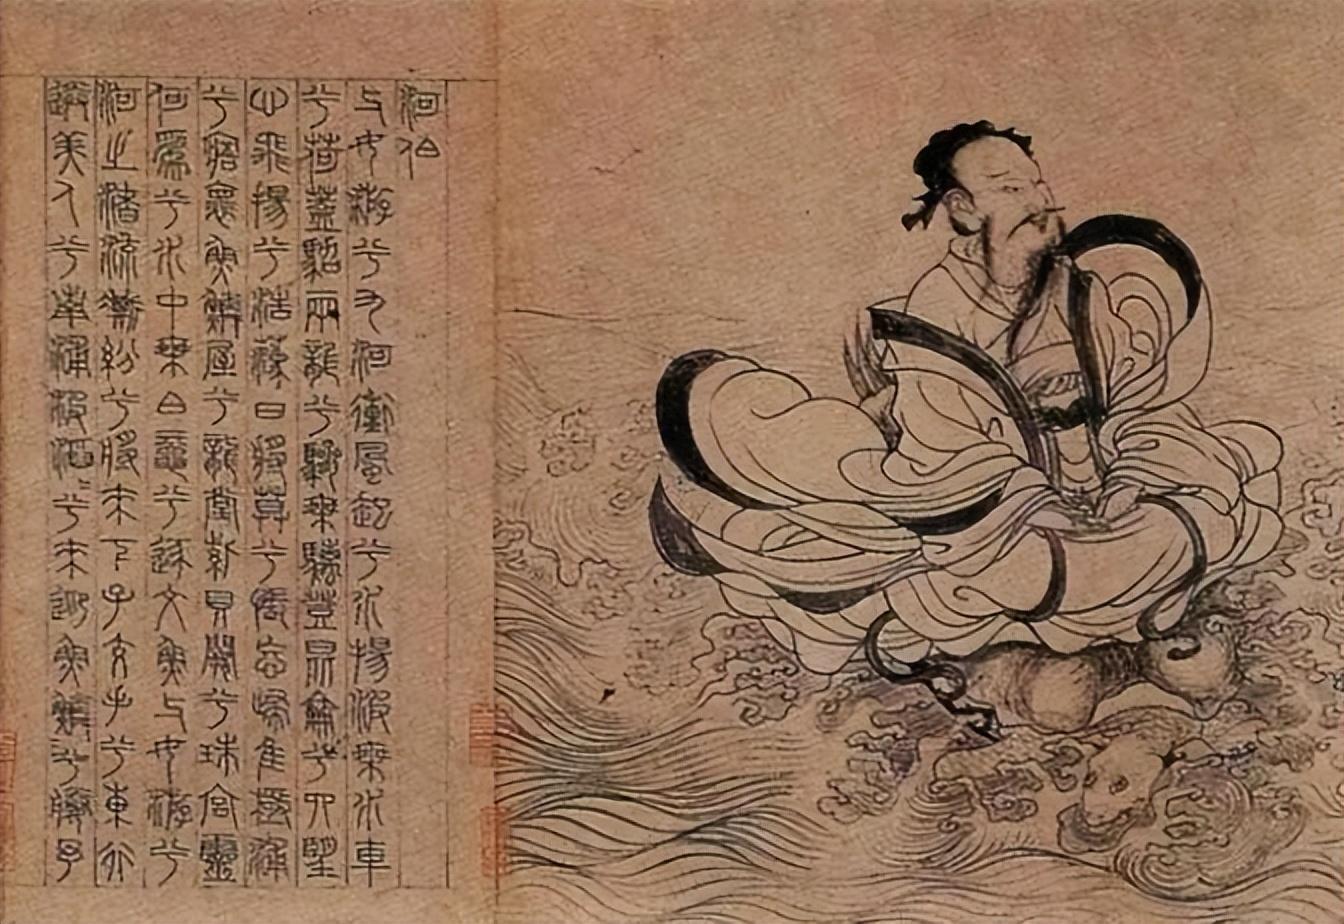 河伯
与女游兮九河衝風起兮水揚波乘水車
兮荷蓋駕兩龍兮驂乘螭登昆侖兮四望
心飛揚兮浩蕩日將莫兮悵忘歸惟極浦
兮寤懷魚鱗屋兮龍堂紫貝闕兮珠宮靈
何爲兮水中乘白黿兮逐文魚与女游兮
河之渚流澌紛兮將來下子交手兮東行
送美人兮南浦波滔兮來迎魚鱗兮媵予